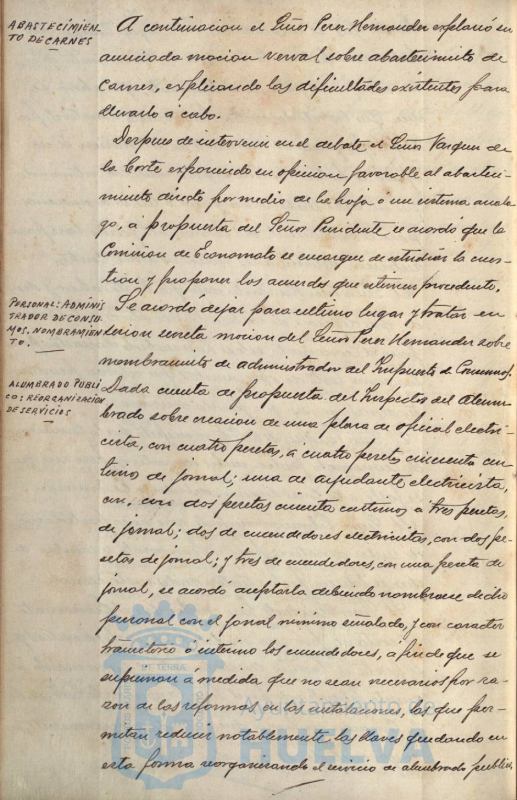 ABASTECIMIEN-
TO DE CARNES
A continuacion el Señor Perez Hernandez explanó su
anunciada mocion verval sobre abastecimiento de
carnes, explicando las dificultades existentes para
llevarlo á cabo.
Despues de intervenir en el debate el Señor Vazquez de
la Corte exponiendo su opinion favorable al abasteci-
miento directo por medio de la hoja ó un sistema analo-
go, a propuesta del Señor Presidente se acordó que la
Comision de Economato se encargue de estudiar la cues-
tion y proponer los acuerdos que estimen procedente.
PERSONAL: ADMINIS
TRADOR DE CONSU-
MOS. NOMBRAMIEN
TO.
Se acordó dejar para ultimo lugar y tratar en
sesion secreta mocion del Señor Perez Hernandez sobre
nombramiento de administrador del Impuesto de Consumos.
ALUMBRADO PÚBLI
CO: REORGANIZACION
DE SERVICIOS
Dada cuenta de propuesta del Inspector del Alum-
brado sobre creacion de una plaza de oficial electri-
cista, con cuatro pesetas, á cuatro pesetas cincuenta cen-
timos de jornal; una de ayudante electricista,
con dos pesetas cincuenta centimos á tres pesetas,
de jornal; dos de encendedores electricistas, con dos pe-
setas de jornal; y tres de encendedores, con una peseta de
jornal, se acordó aceptarla debiendo nombrarse dicho
personal con el jornal minimo señalado, y con caracter
transitorio ó interino los encendedores, á fin de que se
supriman á medida que no sean necesarios por ra-
zon de las reformas en las instalaciones, las que per-
mitan reducir notablemente las llaves quedando en
esta forma reorganizando el servicio de alumbrado publico.
Ayuntamiento de
HUELVA